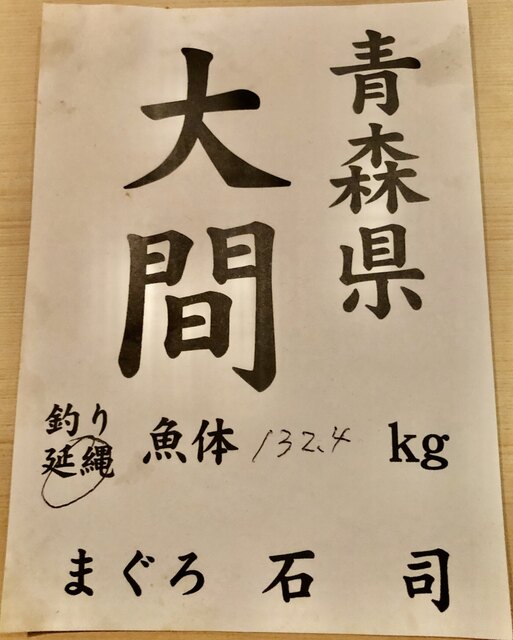 青森県
大間
釣り
延縄 魚体 132.4 kg
まぐろ 石司